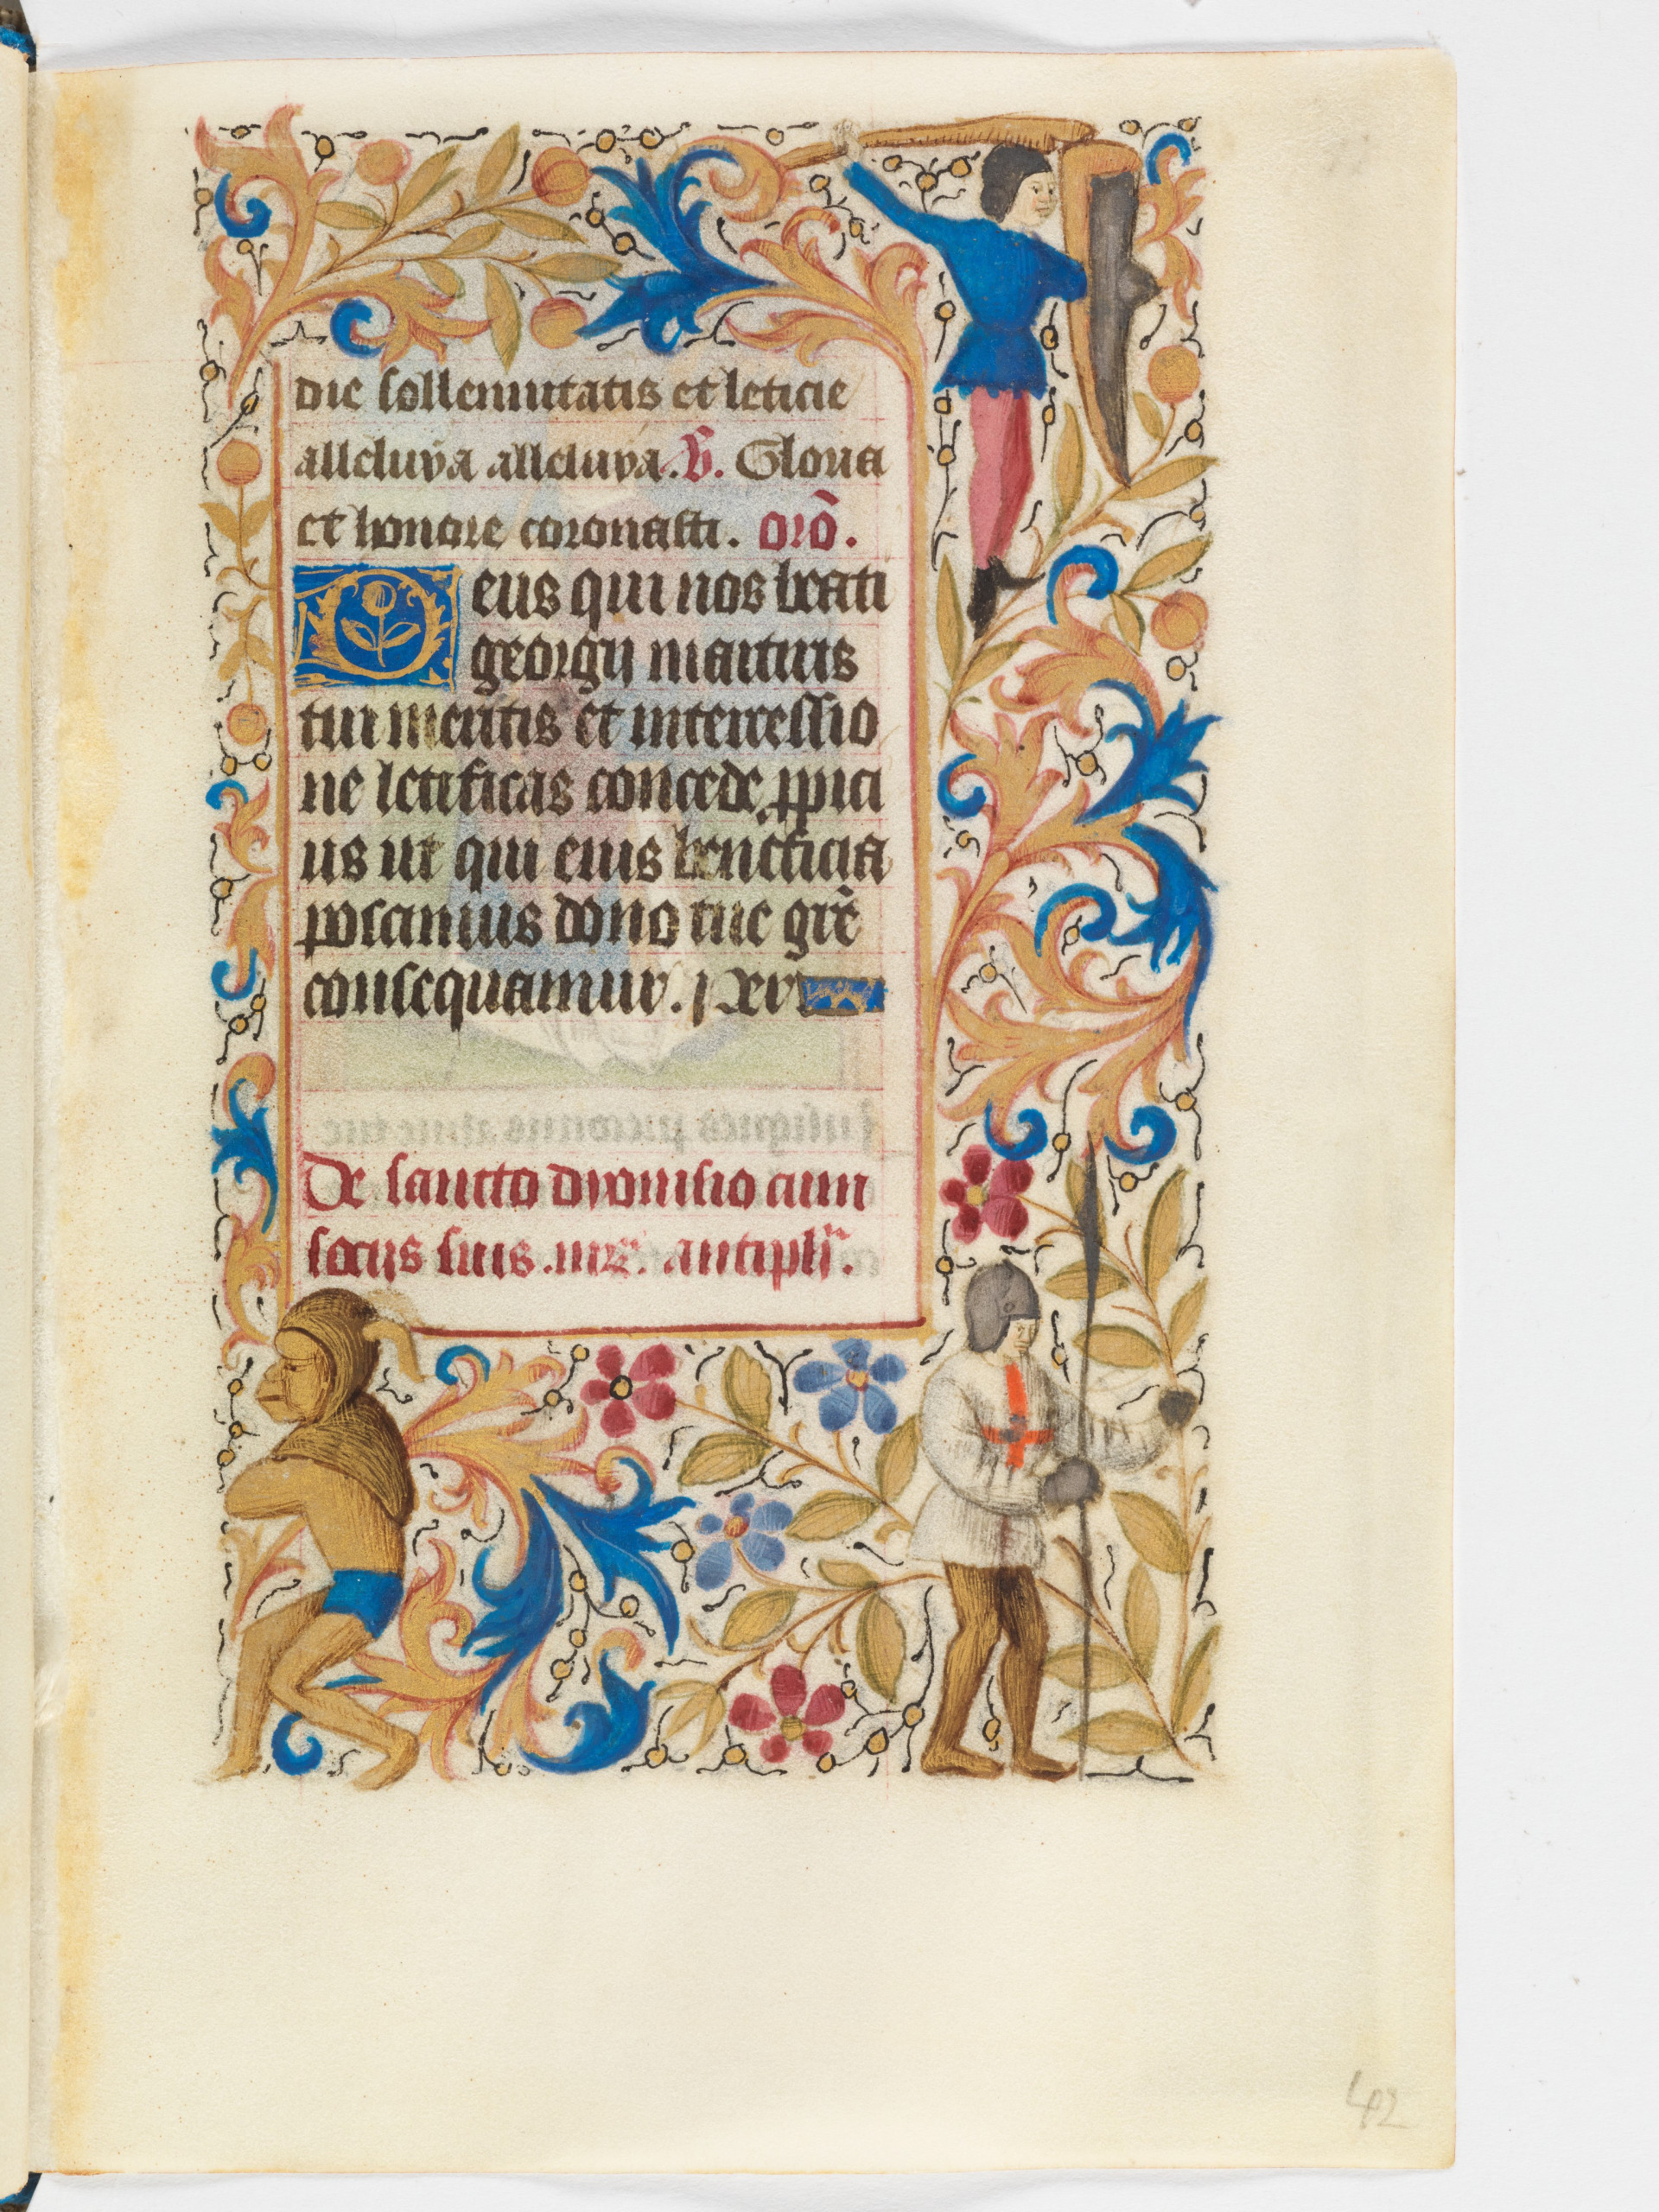 die sollennitatis et leticie
alleluya alleluya. V̄. Gloria
et honore coronasti. orō.
Deus qui nos beati
georgij martiris
tui meritis et intercessio
ne letificas concede ꝓpici
us ut qui eius beneficia
poscimus dono tue gr̄e
consequamur. p xp̄
De sancto dyonisio cum
socijs suis. mr̄. antiph̄.
42